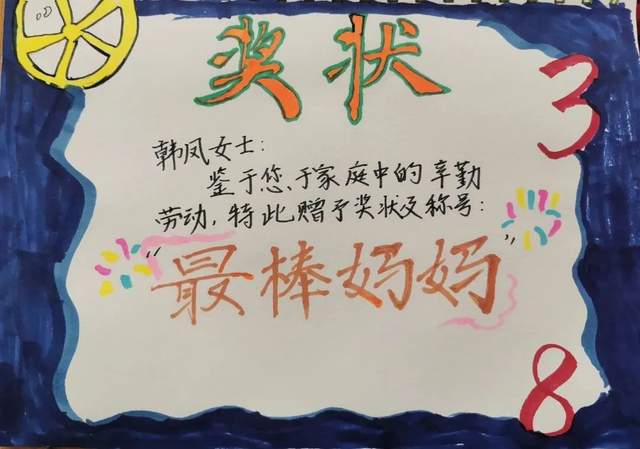 奖状
3
韩凤女士:
鉴于您、于家庭中的辛勤
劳动,特此赠予奖状及称号:
“最棒妈妈”
8